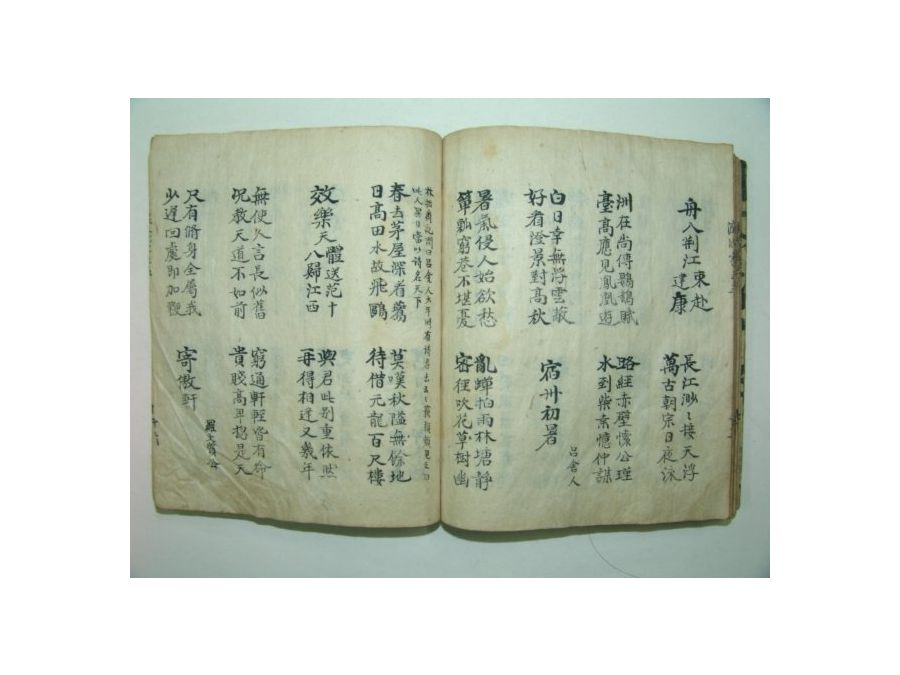 舟八荊江
東赴
建康
長江渺〻接天浮
萬古朝宗日夜流
洲在尚傳鸚鵡賦
臺高應見鳳凰遊
路經赤壁懷公瑾
水到柴桑憶仲謀
白日幸無浮雲蔽
好看澄景對高秋
宿州初暑
呂舍人
暑氣侵人始欲愁
簞瓢窮巷不堪憂
亂蟬拍雨林塘靜
密徑吹花草樹幽
此人異日當以詩名天下
春去茅屋深看鷰
日高田水故飛鷗
莫嘆秋隘無餘地
待借元龍百尺樓
效樂天體送范十
八歸江西
與君此別重依然
再得相逢又幾年
無使久言長似舊
況教天道不如前
窮通軒輊皆有命
貴賤高卑揔是天
只有脩身全屬我
少遲回處即加鞭
寄傲軒